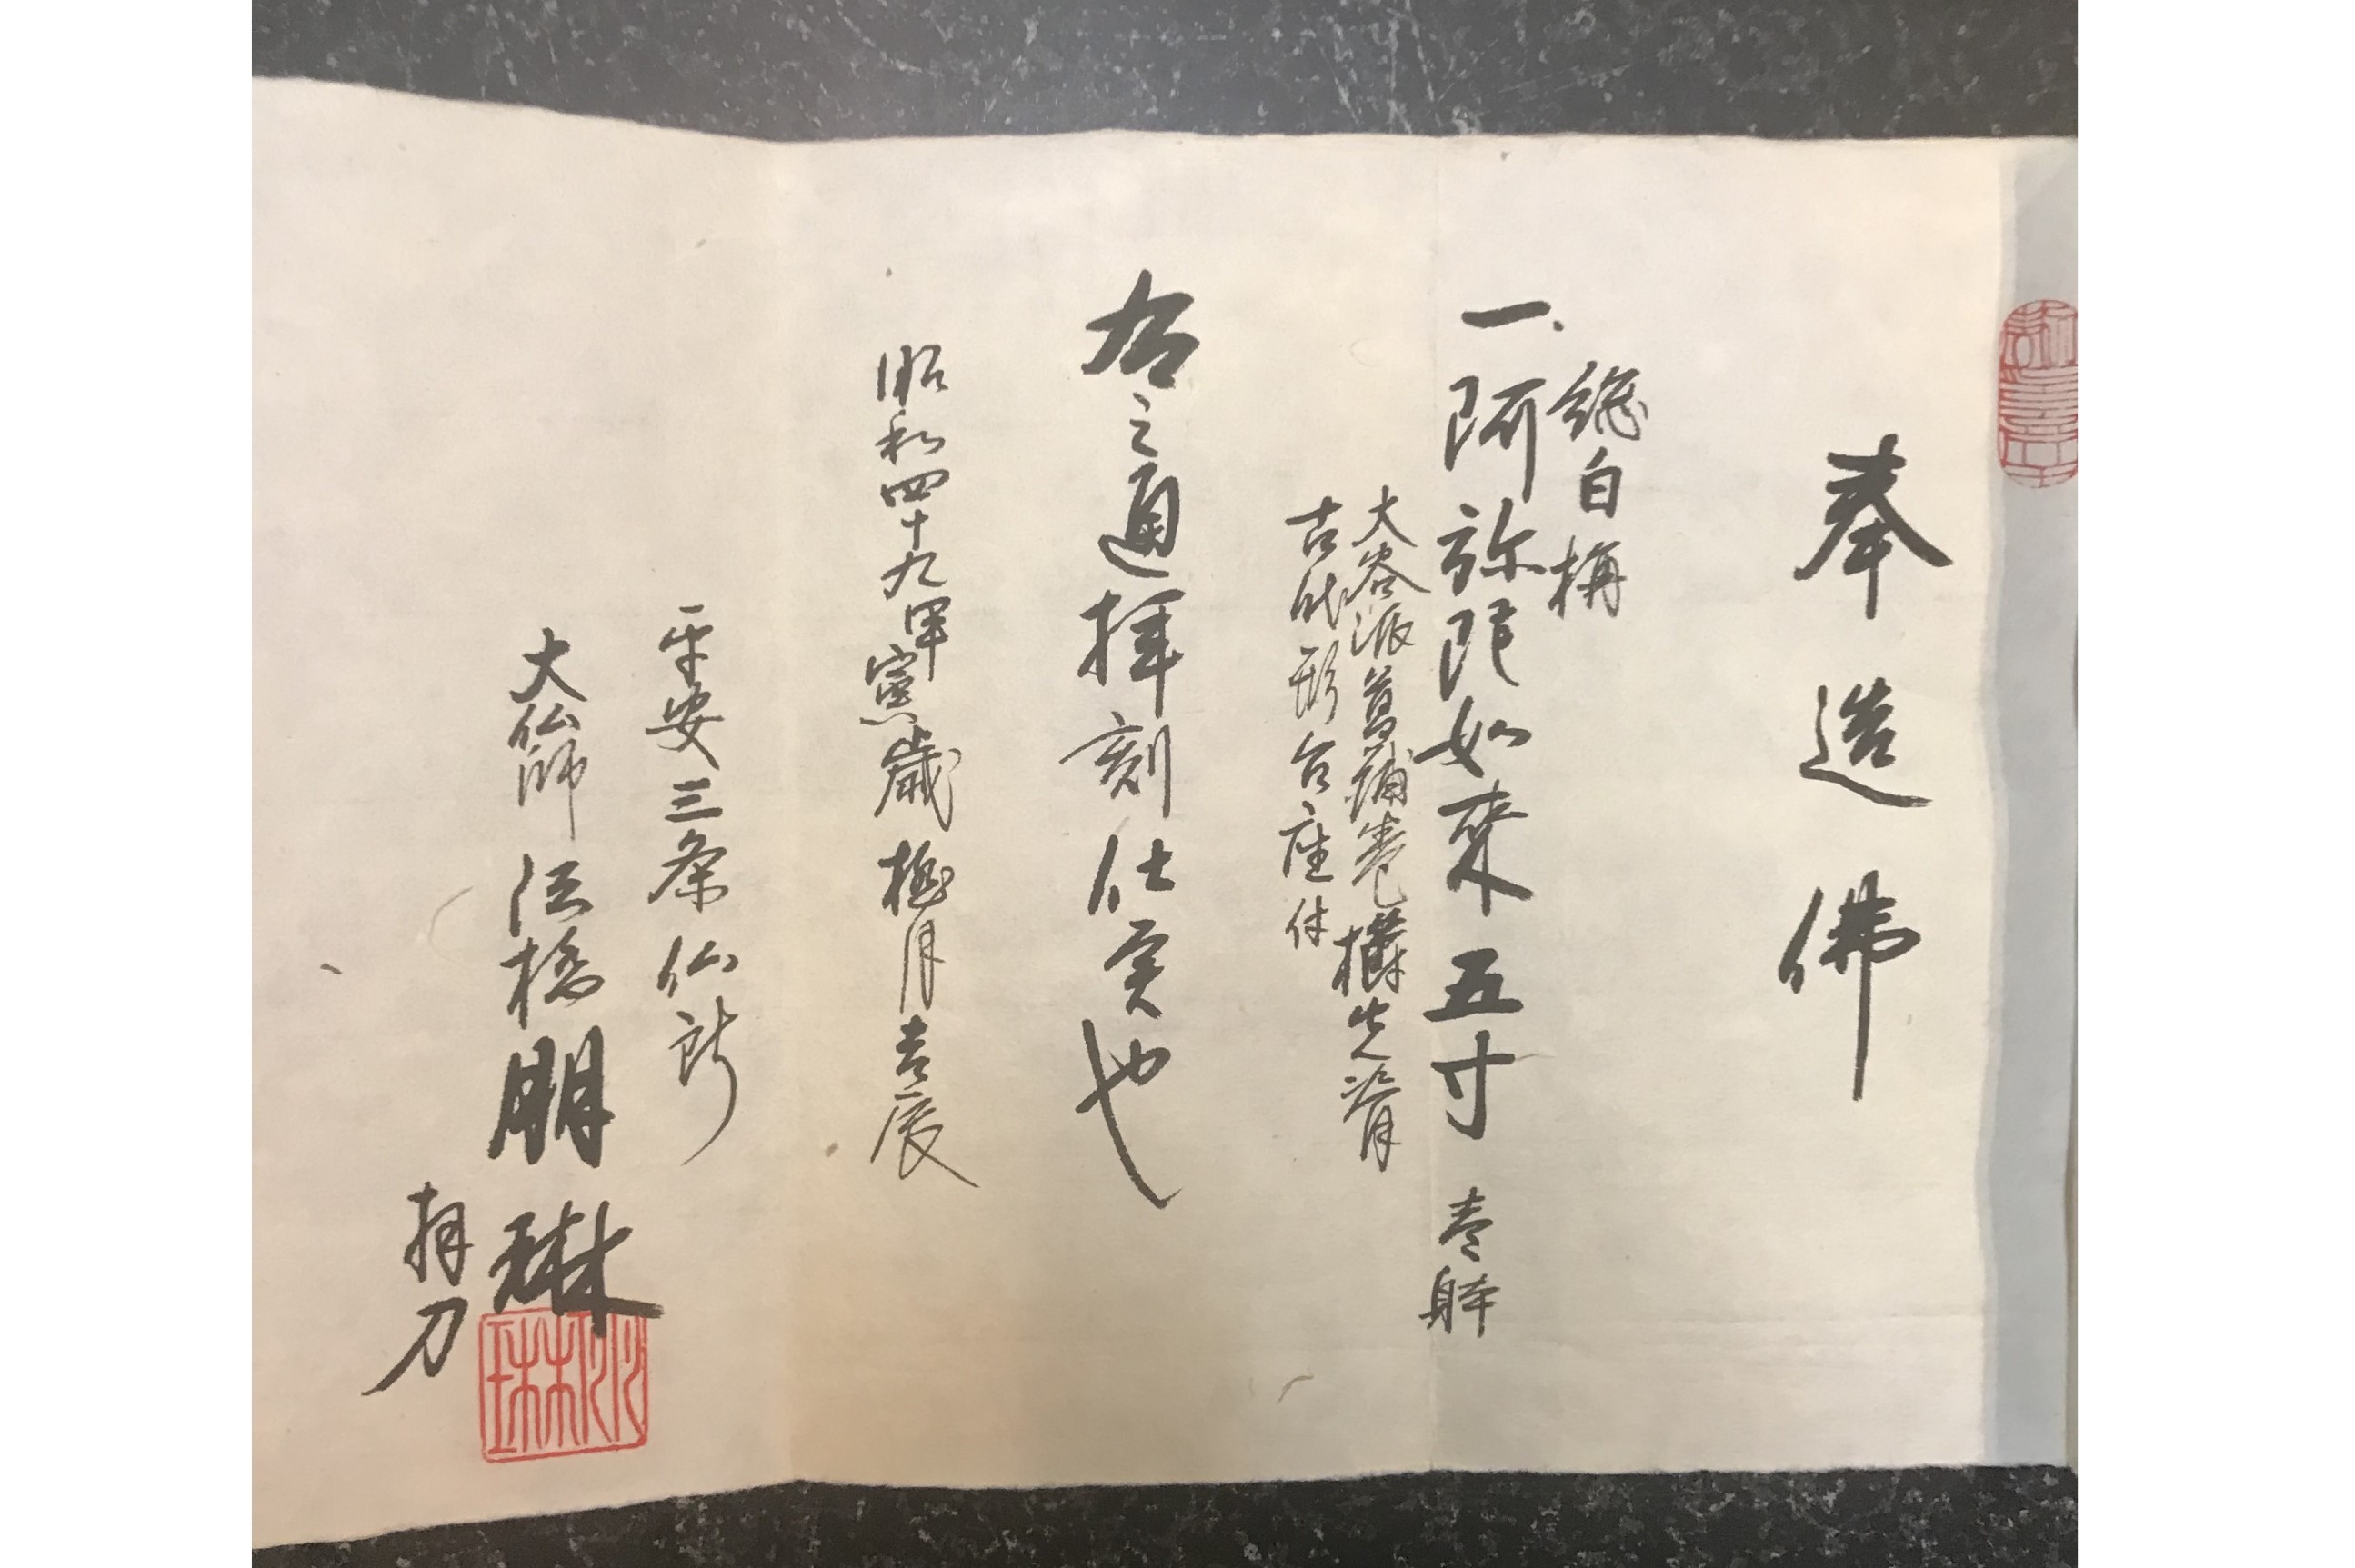 奉造佛
総白栴
一、阿弥陀如来 五寸 壱躰
大谷派菖蒲巻
古代形台座付
右之通拝刻仕実也
昭和四十九甲寅歳 極月吉辰
平安三条仏所
大仏師 法橋 朋琳
刀